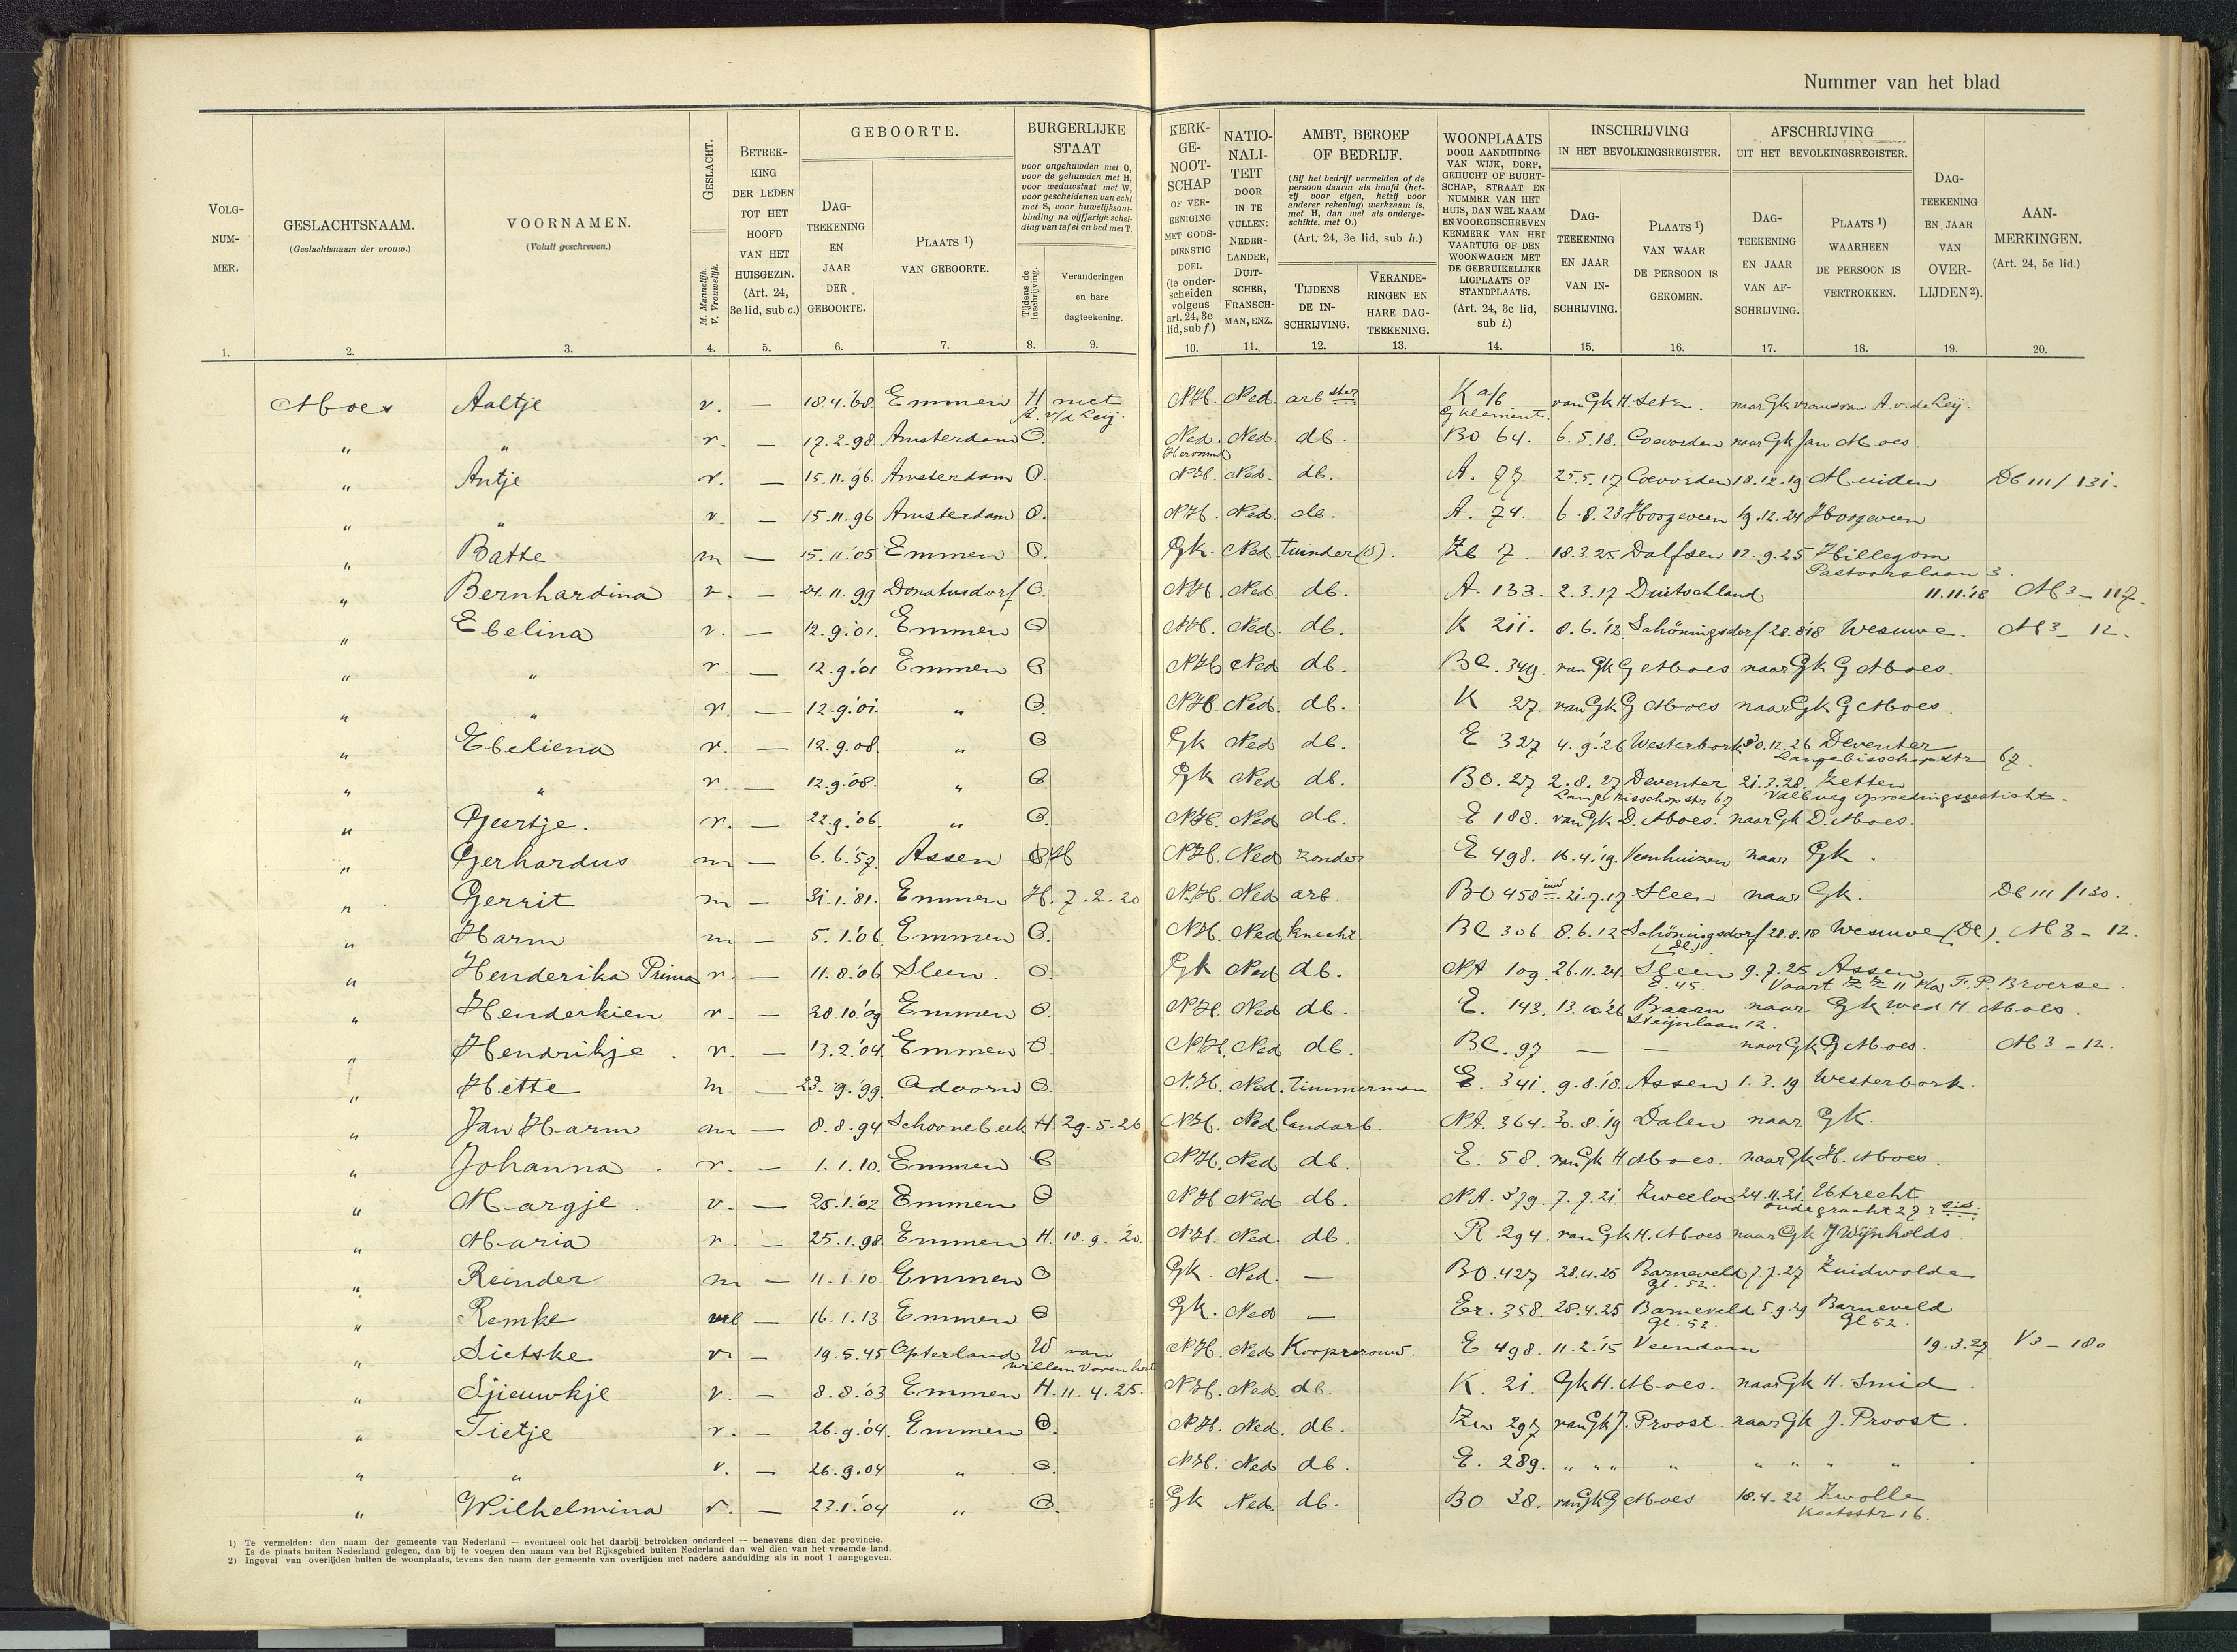 Nummer van het blad
VOLG-NUM-MER.
GESLACHTSNAAM.
(Geslachtsnaam der vrouw.)
VOORNAMEN.
(Voluit geschreven.)
GESLACHT.
M. Mannelijk. V. Vrouwelijk.
BETREKKING DER LEDEN TOT HET HOOFD VAN HET HUISGEZIN.
(Art. 24, 3e lid, sub c.)
GEBOORTE.
DAG-TEEKENING EN JAAR DER GEBOORTE.
PLAATS 1) VAN GEBOORTE.
BURGERLIJKE STAAT
voor ongehuwden met O, voor de gehuwden met H, voor weduwstaat met W, voor gescheidenen van echt met S, voor huwelijksontbinding na vijfjarige scheiding van tafel en bed met T.
Tijdens de inschrijving.
Veranderingen en hare dagteekening.
KERK-GE-NOOT-SCHAP OF VEREENIGING MET GODSDIENSTIG DOEL (te onderscheiden volgens art. 24, 3e lid, sub f.)
NATIO-NALI-TEIT DOOR IN TE VULLEN: NEDERLANDER, DUITSCHER, FRANSCHMAN, ENZ.
AMBT, BEROEP OF BEDRIJF.
(Bij het bedrijf vermelden of de persoon daarin als hoofd (hetzij voor eigen, hetzij voor anderer rekening) werkzaam is, met H, dan wel als ondergeschikte, met O.)
(Art. 24, 3e lid, sub h.)
TIJDENS DE INSCHRIJVING.
VERANDERINGEN EN HARE DAGTEEKENING.
WOONPLAATS DOOR AANDUIDING VAN WIJK, DORP, GEHUCHT OF BUURTSCHAP, STRAAT EN NUMMER VAN HET HUIS, DAN WEL NAAM EN VOORGESCHREVEN KENMERK VAN HET VAARTUIG OF DEN WOONWAGEN MET DE GEBRUIKELIJKE LIGPLAATS OF STANDPLAATS.
(Art. 24, 3e lid, sub i.)
INSCHRIJVING IN HET BEVOLKINGSREGISTER.
DAG-TEEKENING EN JAAR VAN INSCHRIJVING.
PLAATS 1) VAN WAAR DE PERSOON IS GEKOMEN.
AFSCHRIJVING UIT HET BEVOLKINGSREGISTER.
DAG-TEEKENING EN JAAR VAN AFSCHRIJVING.
PLAATS 1) WAARHEEN DE PERSOON IS VERTROKKEN.
DAG-TEEKENING EN JAAR VAN OVERLIJDEN 2).
AANMERKINGEN.
(Art. 24, 5e lid.)
1. 2. 3. 4. 5. 6. 7. 8. 9. 10. 11. 12. 13. 14. 15. 16. 17. 18. 19. 20.
Moes Aaltje v. — 18.4.'68. Emmen H met A. v/d Leij. N.H. Ned. arbster K a/b G Klement. van Gk H. naar Gk vrouw van A. v. de Leij.
" " v. — 17.2.98. Amsterdam O. Ned. Hervormd Ned. db. BO 64. 6.5.18. Coevorden naar Gk Jan Moes
" Antje v. — 15.11.96. Amsterdam O. N.H. Ned. db. A. 77 25.5.17 Coevorden 18.12.19 Muiden Db III / 131.
" " v. — 15.11.96 Amsterdam O. N.H. Ned. db. A. 74. 6.8.23 Hoogeveen 19.12.24 Hoogeveen
" Batte m — 15.11.'05 Emmen O. Gk. Ned. tuinder (O). Zb 7. 18.3.25 Dalfsen 12.9.25 Hillegom Pastoorslaan 3.
" Bernhardina v. — 24.11.99 Donatusdorf O. N.H. Ned. db. A. 133. 2.3.17 Duitschland 11.11.'18 M3 - 117.
" Ebelina v. — 12.9.'01. Emmen O N.H. Ned. db. K 211. 8.6.'12 Schöningsdorf 28.8'18 Wesuwe. M3 - 12.
" " v. — 12.9.'01 Emmen O N.H. Ned db. BC. 349. van Gk G Moes naar Gk G Moes.
" " v. — 12.9.'01. " O. N.H. Ned. db. K 27 van Gk G Moes naar Gk G Moes.
" Ebeliena v. — 12.9.08. " O Gk Ned db. E 327 4.9.'26 Westerbork 30.12.26 Deventer Langebisschopstr 67.
" " v. — 12.9.'08. " O. Gk Ned db. BO. 27 2.8.27 Deventer Lange Bisschopstr 67 21.3.28. Zetten Valburg opvoedingsgesticht.
" Geertje. v. — 22.9.'06. " O. N.H. Ned db. E 188. van Gk D. Moes. naar Gk D. Moes.
" Gerhardus m — 6.6.'57. Assen H N.H. Ned zonder E 498. 16.4.'19. Veenhuizen naar Gk.
" Gerrit m — 31.1.'81. Emmen H. 7.2.20 N.H. Ned arb BO 458 21.7.17 Sleen naar Gk. Db III / 130.
" Harm m — 5.1.'06 Emmen O. N.H. Ned knecht. BC 306 8.6.12 Schöningsdorf (Dl.) 28.8.18 Wesuwe (Dl). M3 - 12.
" Henderika Prima v. — 11.8.'06 Sleen. O. Gk Ned db. NA 109 26.11.24. Sleen E. 45. 9.7.25 Assen Vaart ZZ 11 F. P. Broerse.
" Henderkien v. — 28.10.'09 Emmen O. N.H. Ned db. E. 143. 13.10.'26 Baarn Steijnlaan 12. naar Gk wed H. Moes.
" Hendrikje. v. — 13.2.'04. Emmen O. N.H. Ned. db. BC. 97 — — naar Gk G Moes. M3 - 12.
" Hette m — 23.9.'99. Odoorn O. N.H. Ned. timmerman E. 341. 9.8.'18. Assen 1.3.19 Westerbork.
" Jan Harm m — 8.8.94 Schoonebeek H. 29.5.26 N.H. Ned landarb. NA. 364. 30.8.'19 Dalen naar Gk.
" Johanna. v. — 1.1.10. Emmen O N.H. Ned db. E. 58. van Gk H Moes. naar Gk H. Moes.
" Margje. v. — 25.1.'02 Emmen O N.H Ned db. NA. 379. 7.7.21. Zweeloo 24.11.21. Utrecht oudegracht 273 bis.
" Maria v. — 25.1.98. Emmen H. 18.9.'20. N.H. Ned. db. R. 294. van Gk H. Moes naar Gk J Wijnholds
" Reinder m — 11.1.10 Emmen O Gk. Ned. — BO. 427 28.4.25 Barneveld Gl. 52. 7.7.27 Zuidwolde
" Remke vl — 16.1.13 Emmen O Gk. Ned — Er. 358. 28.4.25 Barneveld Gl. 52. 5.9.29 Barneveld Gl 52.
" Sietske v. — 19.5.45 Opsterland W van Willem Vorenhout N.H. Ned Koopvrouw. E 498. 11.2.'15 Veendam 19.3.27 V3 - 180
" Sjieuwkje v. — 8.8.'03 Emmen H. 11.4.25. N.H. Ned. db. K. 21. Gk H. Moes. naar Gk H. Smid.
" Tietje v. — 26.9.'04. Emmen O. N.H. Ned. db. Zw 297 van Gk J. Proost naar Gk J. Proost.
" " v. — 26.9.04 " O. N.H. Ned db. E. 289. " " " " " " " "
" Wilhelmina v. — 23.1.'04 " O. Gk Ned. db. BO 38. van Gk G Moes 18.4.22 Zwolle Koetsstr 16.
1) Te vermelden: den naam der gemeente van Nederland — eventueel ook het daarbij betrokken onderdeel — benevens dien der provincie.
Is de plaats buiten Nederland gelegen, dan bij te voegen den naam van het Rijksgebied buiten Nederland dan wel dien van het vreemde land.
2) Ingeval van overlijden buiten de woonplaats, tevens den naam der gemeente van overlijden met nadere aanduiding als in noot 1 aangegeven.